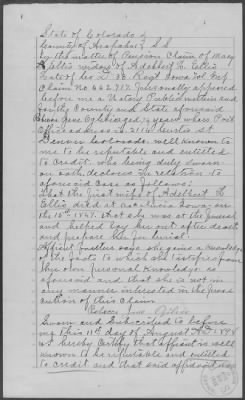 State of Colorado
County of Arapahoe } S.S
In the matter of Pension Claim of Mary
Ellis widow of Adelbert L. Ellis
late of Co. D. 38 Regt Iowa Vol Inf
Claim No 662,717. Personally appeared
before me a Notary Public within and
for the County and State aforesaid
Jane aged 72 years whose Post
Office address is 2116 Curtis St
Denver Colorado. well known to
me to be reputable and entitled
to credit, who being duly sworn
on oath declares in relation to
aforesaid case as follows:
That the first wife of Adelbert L.
Ellis died at Iowa, on
the 10th 1869. that she was at the funeral
and helped lay her out after death
and prepare her for burial.
Affiant further says she gains a knowledge
of the facts to which she testifies from
her own personal knowledge as
aforesaid and that she is not in
any manner interested in the prose-
cution of this Claim
Jane
Sworn and subscribed to before
me this 11th day of August A.D. 1898
& I hereby Certify that affiant is well
known to be reputable and entitled
to credit and that said affidavit was